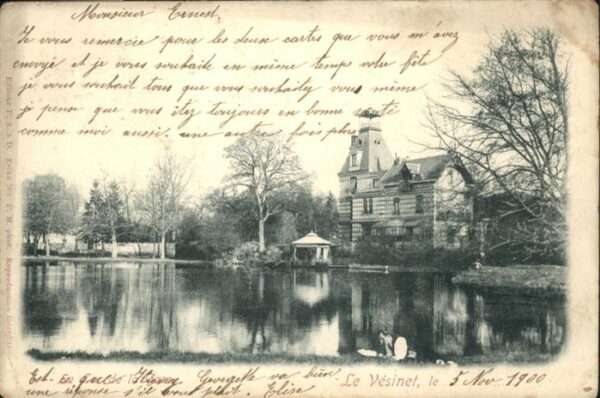 Monsieur Ernest,
Je vous remercie pour les deux cartes que vous m'avez
envoyé et je vous souhaite en même temps votre fête
je vous souhait tous que vous souhaitez vous même
je pense que vous êtez toujours en bonne santé
comme moi aussi. une autre fois plus
Est-ce que Georgette va bien
une réponse s'il vous plait. Elise
Le Vésinet, le 5 Nov 1900